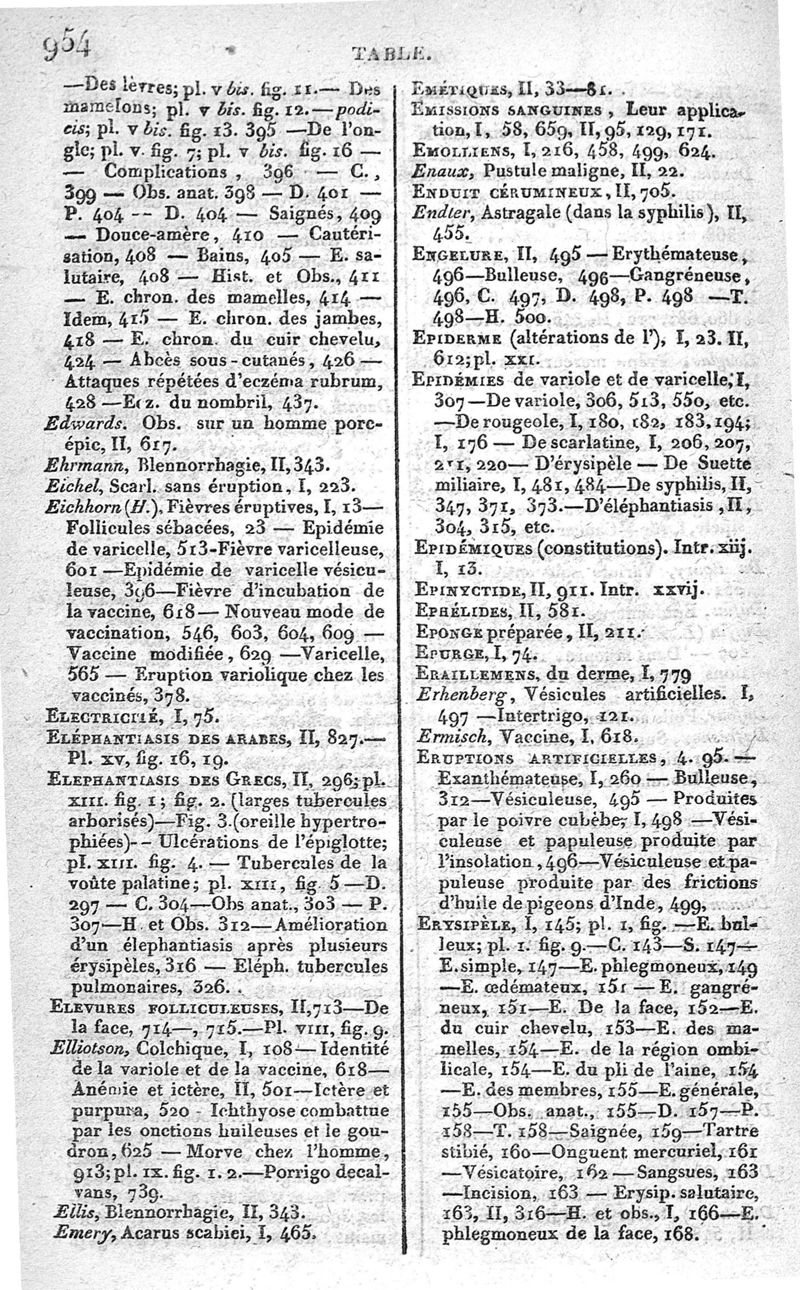 954
TABLE.
—Des lèvres; pl. v bis. fig. 11.— Des
mamelons; pl. v bis. fig. 12.—podi-
cis; pl. v bis. fig. 13. 395 —De l'on-
gle; pl. v. fig. 7; pl. v bis. fig. 16 —
— Complications, 396 — C.,
399 — Obs. anat. 398 — D. 401 —
P. 404 -- D. 404 — Saignés, 409
— Douce-amère, 410 — Cautéri-
sation, 408 — Bains, 405 — E. sa-
lutaire, 408 — Hist. et Obs., 411
— E. chron. des mamelles, 414 —
Idem, 415 — E. chron. des jambes,
418 — E. chron. du cuir chevelu,
424 — Abcès sous-cutanés, 426 —
Attaques répétées d'eczéma rubrum,
428 —Ecz. du nombril, 437.
Edwards. Obs. sur un homme porc-
épic, II, 617.
Ehrmann, Blennorrhagie, II, 343.
Eichel, Scarl. sans éruption, I, 223.
Eichhorn (H.), Fièvres éruptives, I, 13—
Follicules sébacées, 23 — Epidémie
de varicelle, 513-Fièvre varicelleuse,
601 —Epidémie de varicelle vésicu-
leuse, 396—Fièvre d'incubation de
la vaccine, 618— Nouveau mode de
vaccination, 546, 603, 604, 609 —
Vaccine modifiée, 629 —Varicelle,
565 — Eruption variolique chez les
vaccinés, 378.
ELECTRICITÉ, I, 75.
ELÉPHANTIASIS DES ARABES, II, 827.—
Pl. xv, fig. 16, 19.
ELEPHANTIASIS DES GRECS, II, 296; pl.
XIII. fig. 1; fig. 2. (larges tubercules
arborisés)—Fig. 3.(oreille hypertro-
phiées)-- Ulcérations de l'épiglotte;
pl. XIII. fig. 4. — Tubercules de la
voûte palatine; pl. XIII, fig. 5 —D.
297 — C. 304—Obs anat., 303 — P.
307—H. et Obs. 312—Amélioration
d'un élephantiasis après plusieurs
érysipèles, 316 — Eléph. tubercules
pulmonaires, 326. .
ELEVURES FOLLICULEUSES, II, 713—De
la face, 714—, 715.—Pl. VIII, fig. 9.
Elliotson, Colchique, I, 108— Identité
de la variole et de la vaccine, 618—
Anémie et ictère, II, 501—Ictère et
purpura, 520 - Ichthyose combattue
par les onctions huileuses et le gou-
dron, 625 — Morve chez l'homme,
913; pl. IX. fig. 1. 2.—Porrigo decal-
vans, 739.
Ellis, Blennorrhagie, II, 343.
Emery, Acarus scabiei, I, 465.
EMÉTIQUES, II, 33—81.
EMISSIONS SANGUINES, Leur applica-
tion, I, 58, 659, II, 95, 129, 171.
EMOLLIENS, I, 216, 458, 499, 624.
Enaux, Pustule maligne, II, 22.
ENDUIT CÉRUMINEUX, II, 705.
Endter, Astragale (dans la syphilis), II,
455.
ENGELURE, II, 495 — Erythémateuse,
496—Bulleuse, 496—Gangréneuse,
496, C. 497, D. 498, P. 498 —T.
498—H. 500.
EPIDERME (altérations de l'), I, 23. II,
612; pl. XXI.
EPIDÉMIES de variole et de varicelle, I,
307 —De variole, 306, 513, 550, etc.
—De rougeole, I, 180, 182, 183, 194;
I, 176 — De scarlatine, I, 206, 207,
211, 220— D'érysipèle — De Suette
miliaire, I, 481, 484—De syphilis, II,
347, 371, 373.—D'éléphantiasis, II,
304, 315, etc.
EPIDÉMIQUES (constitutions). Intr. xiij.
I, 13.
EPINYCTIDE, II, 911. Intr. xxvij.
EPHÉLIDES, II, 581.
EPONGE préparée, II, 211.
EPURGE, I, 74.
ERAILLEMENS, du derme, I, 779
Erhenberg, Vésicules artificielles. I,
497 —Intertrigo, 121.
Ermisch, Vaccine, I, 618.
ERUPTIONS ARTIFICIELLES, 4. 95. —
Exanthémateuse, I, 260 — Bulleuse,
312—Vésiculeuse, 495 — Produites
par le poivre cubèbe, I, 498 —Vési-
culeuse et papuleuse produite par
l'insolation, 496—Vésiculeuse et pa-
puleuse produite par des frictions
d'huile de pigeons d'Inde, 499,
ERYSIPÈLE, I, 145; pl. 1, fig. —E. bul-
leux; pl. 1. fig. 9.—C. 143—S. 147—
E. simple, 147—E. phlegmoneux, 149
—E. œdémateux, 151 — E. gangré-
neux, 151—E. De la face, 152—E.
du cuir chevelu, 153—E. des ma-
melles, 154—E. de la région ombi-
licale, 154—E. du pli de l'aine, 154
—E. des membres, 155—E. générale,
155—Obs. anat., 155—D. 157—P.
158—T. 158—Saignée, 159—Tartre
stibié, 160—Onguent mercuriel, 161
—Vésicatoire, 162 — Sangsues, 163
—Incision, 163 — Erysip. salutaire,
163, II, 316—H. et obs., I, 166—E.
phlegmoneux de la face, 168.